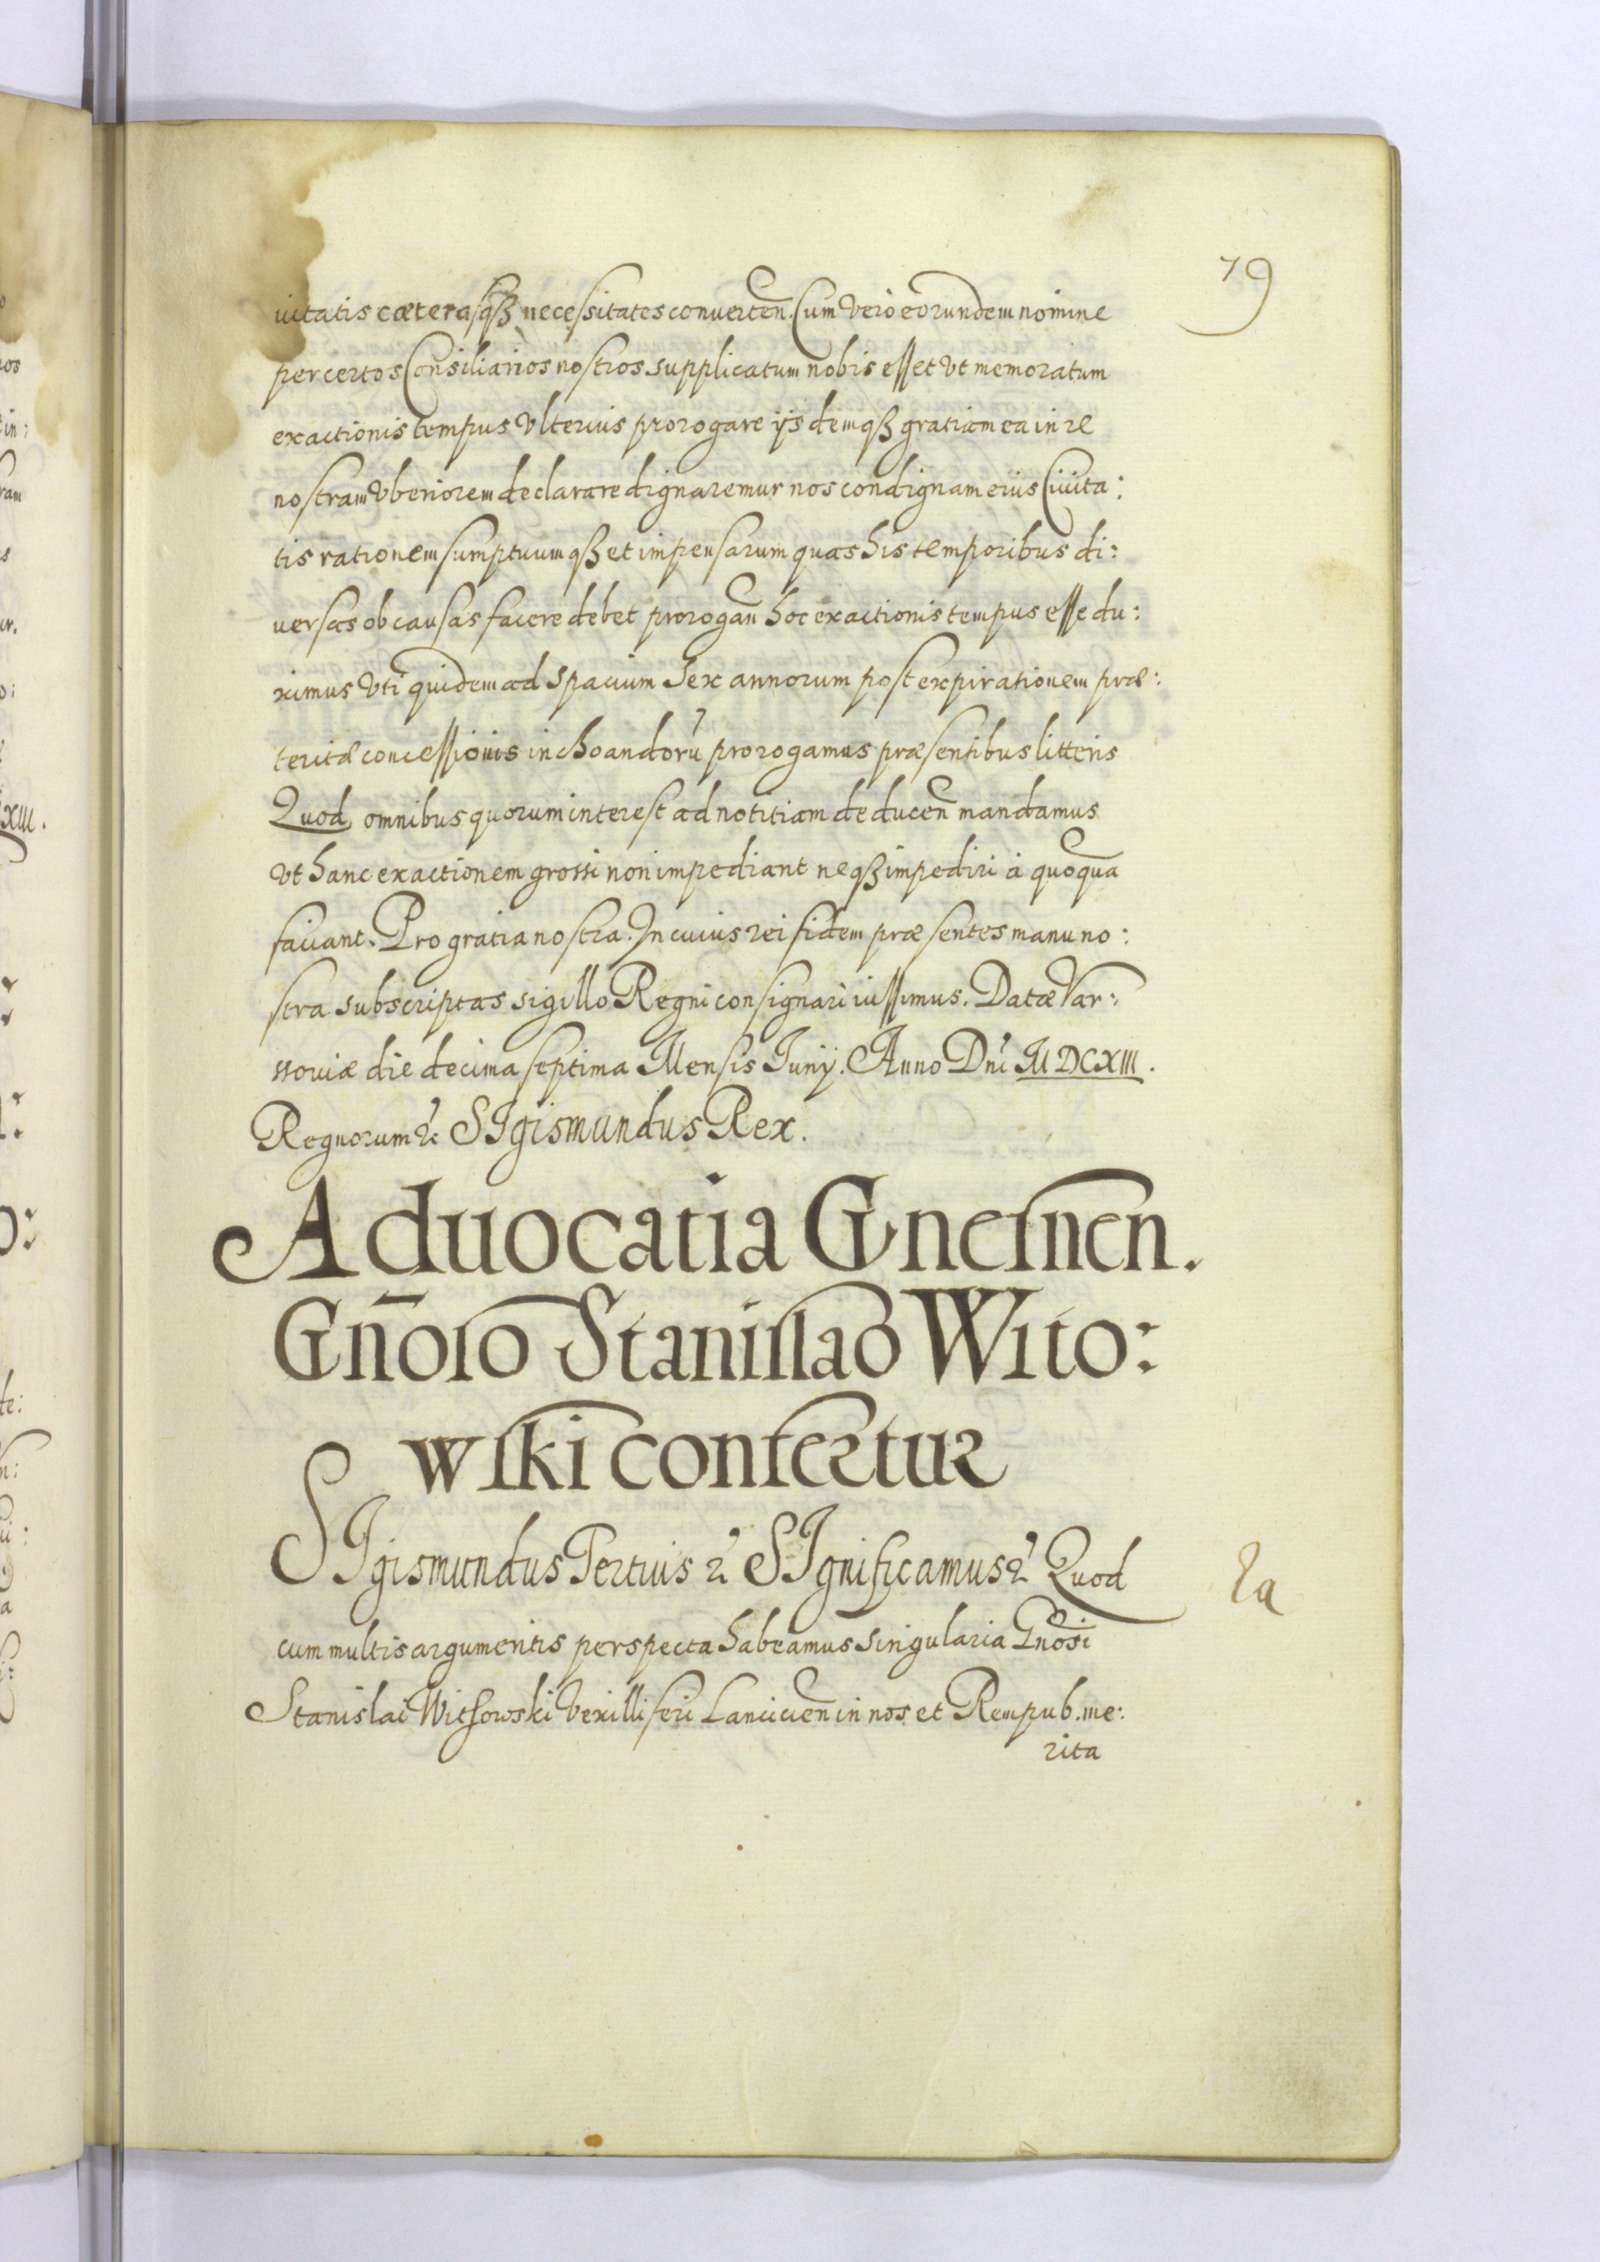 79
uitatis cæterasq₃ necessitates conuerten̄. Cum vero eorundem nomine
per certos Consiliarios nostros supplicatum nobis esset vt memoratum
exactionis tempus vlterius prorogare ijsdemq₃ gratiam ea in re
nostram vberiorem declarare dignaremur nos condignam eius Ciuita:
tis rationem sumptuumq₃ et impensarum quas his temporibus di:
uersas ob causas facere debet prorogan̄ hoc exactionis tempus esse du:
ximus vti quidem ad spacium sex annorum post expirationem præ:
teritæ concessionis inchoandorū prorogamus præsentibus litteris
Quod omnibus quorum interest ad notitiam deducen̄ mandamus
vt hanc exactionem grossi non impediant neq₃ impediri à quoqua
faciant. Pro gratia nostra. In cuius rei fidem præsentes manu no:
stra subscriptas sigillo Regni consignari iussimus. Datæ Var:
ssouiæ die decima septima Mensis Junij. Anno Dnī MDCXIII.
Regnorum &c SIgismundus Rex.
Aduocatia Gnesnen.
Gn̄oso Stanislao Wito:
wski confertur
SIgismundus Tertius &c SIgnificamus &c Quod
cum multis argumentis perspecta habeamus singularia Gn̄osi
Stanislai Withowski Vexilliferi Lancicien̄ in nos et Rempub. me:
rita